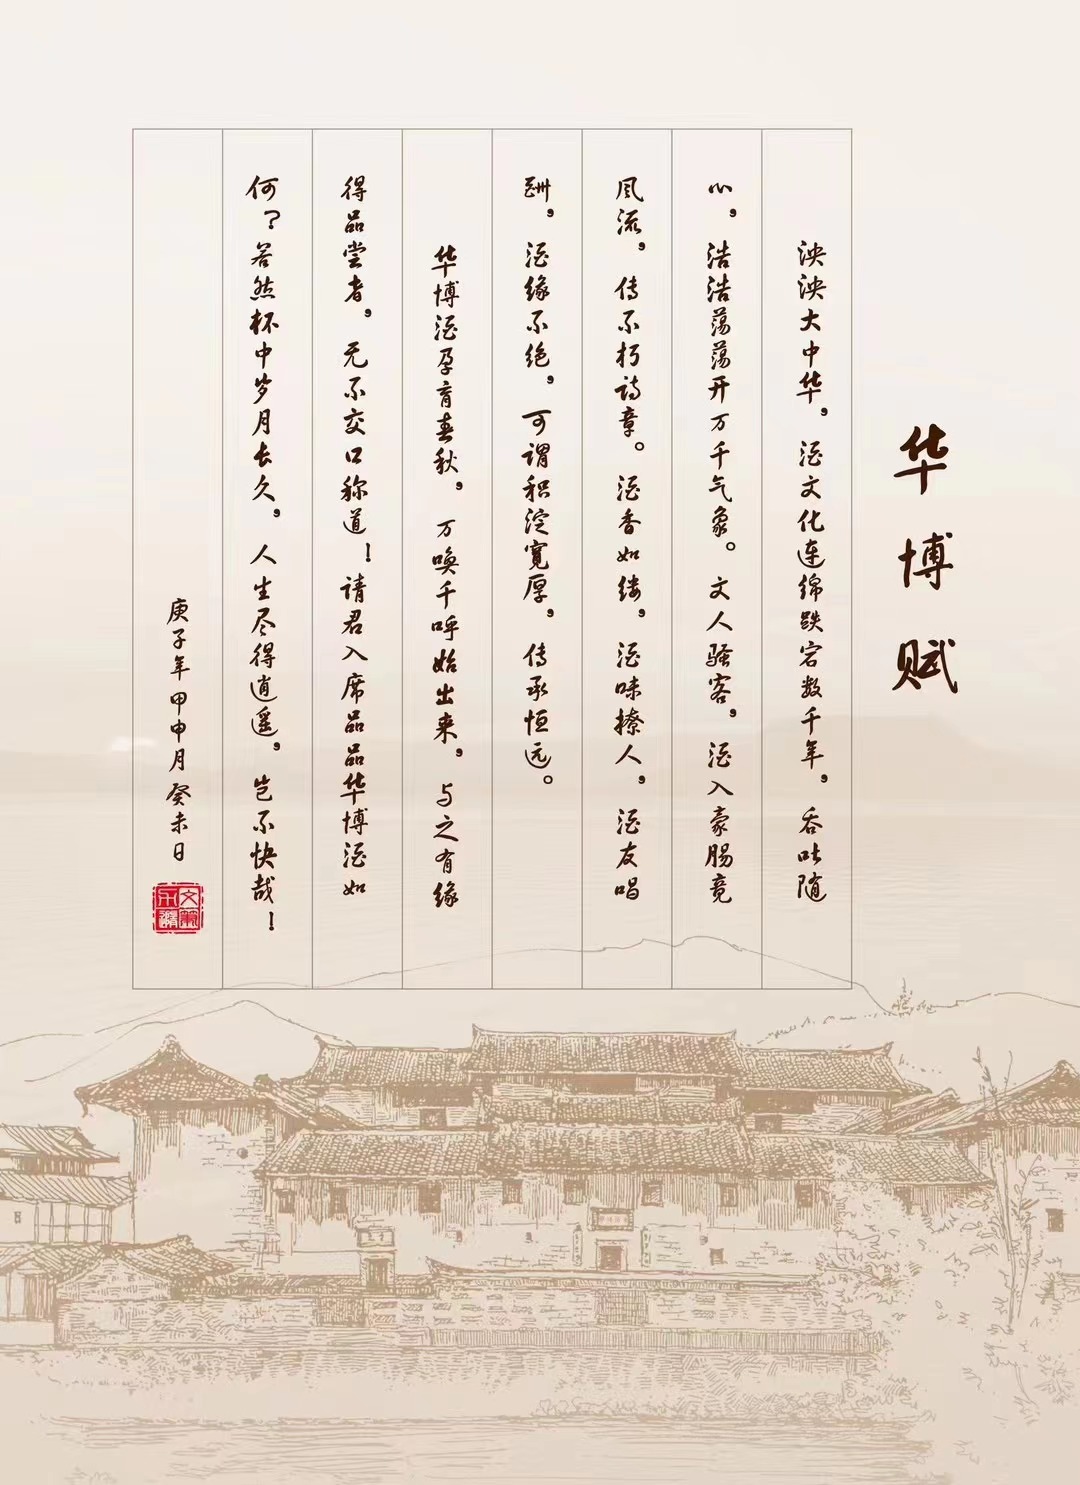 华博赋
泱泱大中华，酒文化连绵跌宕数千年，吞吐随
心，浩浩荡荡开万千气象。文人骚客，酒入豪肠竟
风流，传不朽诗章。酒香如缕，酒味撩人，酒友唱
酬，酒缘不绝，可谓积淀宽厚，传承恒远。
华博酒孕育春秋，万唤千呼始出来，与之有缘
得品尝者，无不交口称道！请君入席品品华博酒如
何？若然杯中岁月长久，人生尽得逍遥，岂不快哉！
庚子年甲申月癸未日